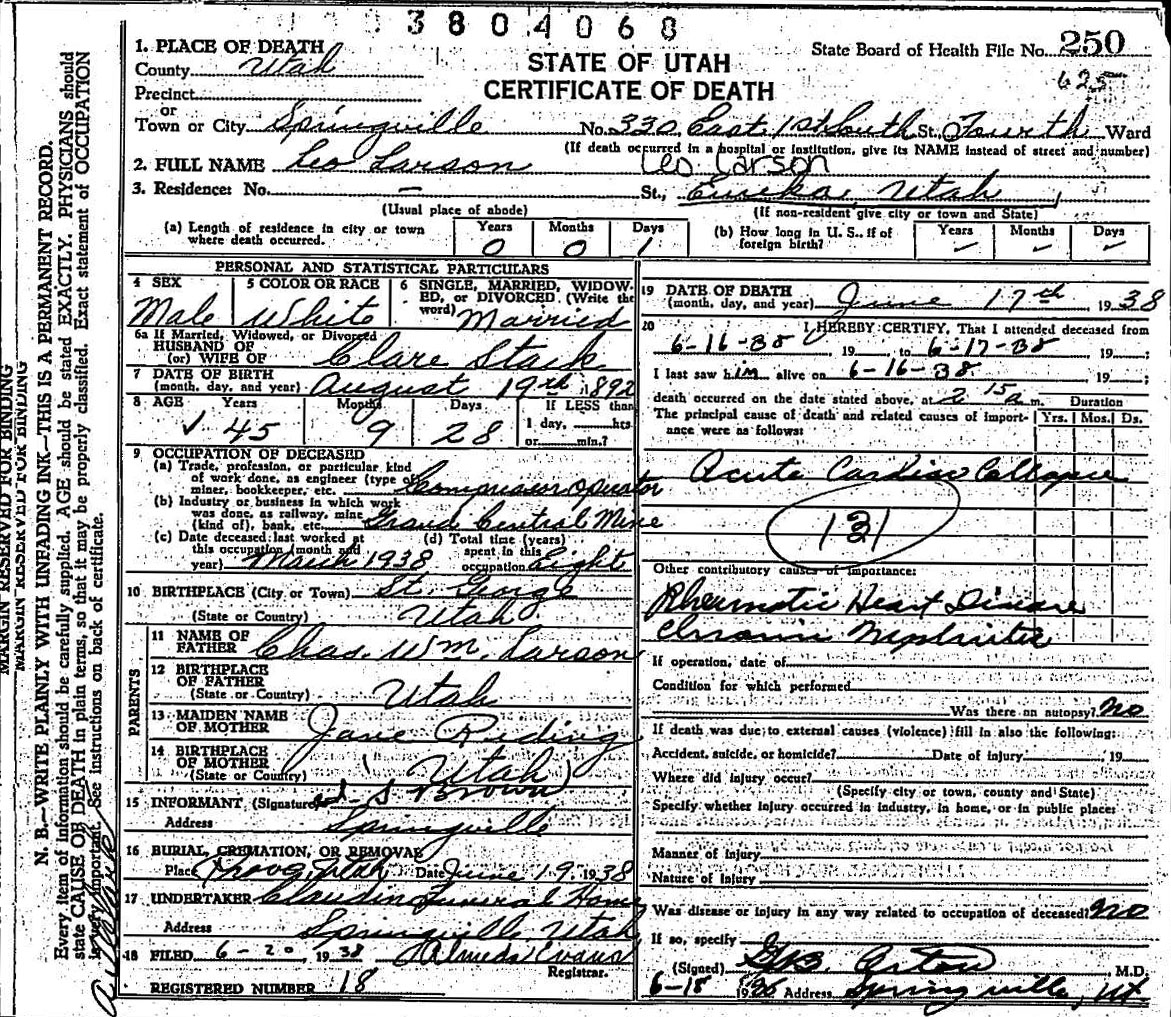 3804068
1. PLACE OF DEATH
County Utah
Precinct
or
Town or City Springville
STATE OF UTAH
CERTIFICATE OF DEATH
State Board of Health File No. 250
625
No. 330 East 1st South St. Fourth Ward
(If death occurred in a hospital or institution, give its NAME instead of street and number)
2. FULL NAME Leo Larson Leo Larson
3. Residence: No. — St., Eureka, Utah
(Usual place of abode) (If non-resident give city or town and State)
(a) Length of residence in city or town where death occurred. Years 0 Months 0 Days 1
(b) How long in U. S., if of foreign birth? Years — Months — Days —
PERSONAL AND STATISTICAL PARTICULARS
4 SEX Male
5 COLOR OR RACE White
6 SINGLE, MARRIED, WIDOWED, or DIVORCED (Write the word) Married
6a If Married, Widowed, or Divorced
HUSBAND OF
(or) WIFE OF Clare Stack
7 DATE OF BIRTH
(month, day, and year) August 19th 1892
8 AGE Years 45 Months 9 Days 28
If LESS than
1 day, hrs
or min.?
9 OCCUPATION OF DECEASED
(a) Trade, profession, or particular kind
of work done, as engineer (type of
miner, bookkeeper, etc. Compressor Operator
(b) Industry or business in which work
was done, as railway, mine
(kind of), bank, etc. Grand Central Mine
(c) Date deceased last worked at
this occupation (month and
year) March 1938
(d) Total time (years)
spent in this
occupation Eight
10 BIRTHPLACE (City or Town) St. Gorge
(State or Country) Utah
PARENTS
11 NAME OF
FATHER Chas. Wm. Larson
12 BIRTHPLACE
OF FATHER
(State or Country) Utah
13 MAIDEN NAME
OF MOTHER Jane Riding
14 BIRTHPLACE
OF MOTHER
(State or Country) Utah
15 INFORMANT (Signature) S Brown
Address Springville
16 BURIAL, CREMATION, OR REMOVAL
Place Provo, Utah Date June 19 1938
17 UNDERTAKER Claudin Funeral Home
Address Springville Utah
18 FILED 6-20 1938 Almeda Evans
Registrar.
REGISTERED NUMBER 18
19 DATE OF DEATH
(month, day, and year) June 17th 1938
20 I HEREBY CERTIFY, That I attended deceased from
6-16-38, 19 to 6-17-38 19 ;
I last saw him alive on 6-16-38 19 ;
death occurred on the date stated above, at 2 15 a m. Duration
The principal cause of death and related causes of importance were as follows: Yrs. Mos. Ds.
Acute Cardiac Collapse
131
Other contributory causes of importance:
Rheumatic Heart Disease
Chronic Nephritis
If operation, date of
Condition for which performed
Was there an autopsy? No
If death was due to external causes (violence) fill in also the following:
Accident, suicide, or homicide? Date of injury , 19
Where did injury occur?
(Specify city or town, county and State)
Specify whether injury occurred in industry, in home, or in public place:
Manner of injury
Nature of injury
Was disease or injury in any way related to occupation of deceased? No
If so, specify
(Signed) , M.D.
6-18 Address Springville, Ut.
MARGIN RESERVED FOR BINDING
MARGIN RESERVED FOR BINDING
N. B.—WRITE PLAINLY WITH UNFADING INK—THIS IS A PERMANENT RECORD.
Every item of information should be carefully supplied. AGE should be stated EXACTLY. PHYSICIANS should
state CAUSE OF DEATH in plain terms, so that it may be properly classified. Exact statement of OCCUPATION
is very important. See instructions on back of certificate.